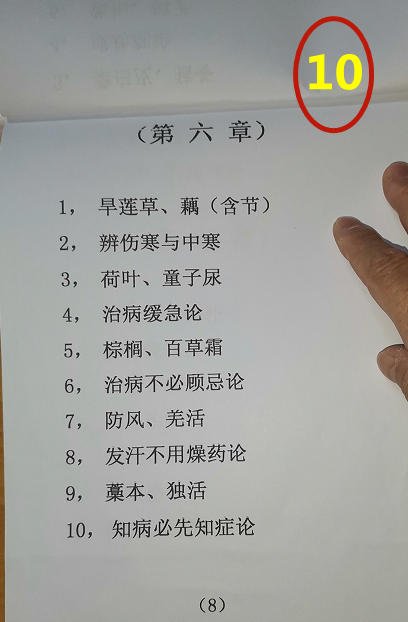 10
（第 六 章）
1， 旱莲草、藕（含节）
2， 辨伤寒与中寒
3， 荷叶、童子尿
4， 治病缓急论
5， 棕榈、百草霜
6， 治病不必顾忌论
7， 防风、羌活
8， 发汗不用燥药论
9， 藁本、独活
10， 知病必先知症论
（8）